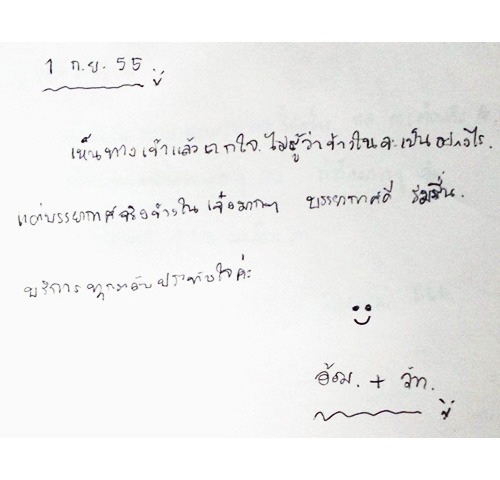 1 ก.ย. 55
เห็นทางเข้าแล้วตกใจ ไม่รู้ว่าข้างในจะเป็นอย่างไร.
แต่บรรยากาศจริงข้างใน เจ๋งมากๆ บรรยากาศดี ร่มรื่น.
บริการทุกระดับประทับใจค่ะ
อ้อม. + วัท.